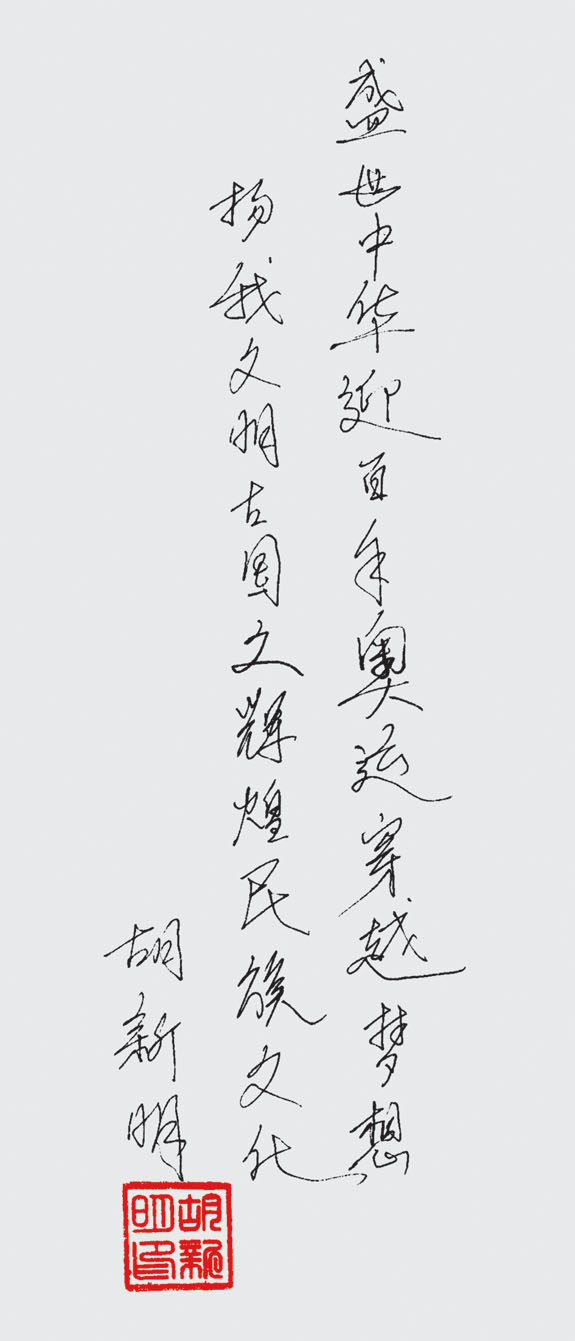 盛世中华迎百年奥运穿越梦想
扬我文明古国文辉煌民族文化
胡新明
胡新明印